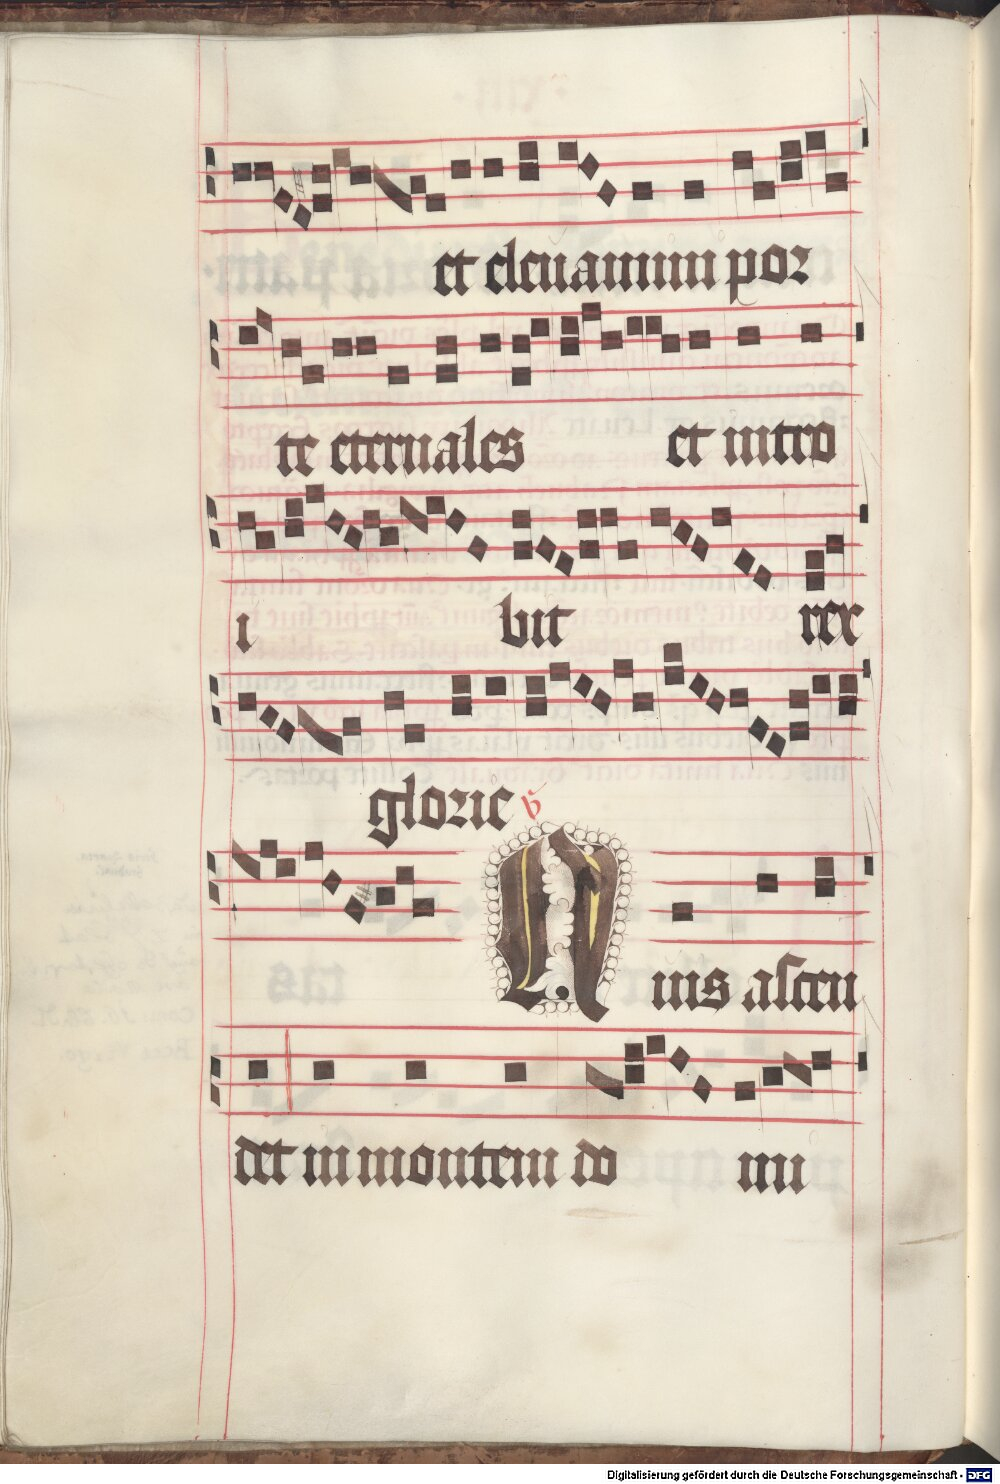 et eleuamini por
te eternales et intro
i bit rex
glorie v̕
Quis ascen
det in montem do mi
Digitalisierung gefördert durch die Deutsche Forschungsgemeinschaft - DFG